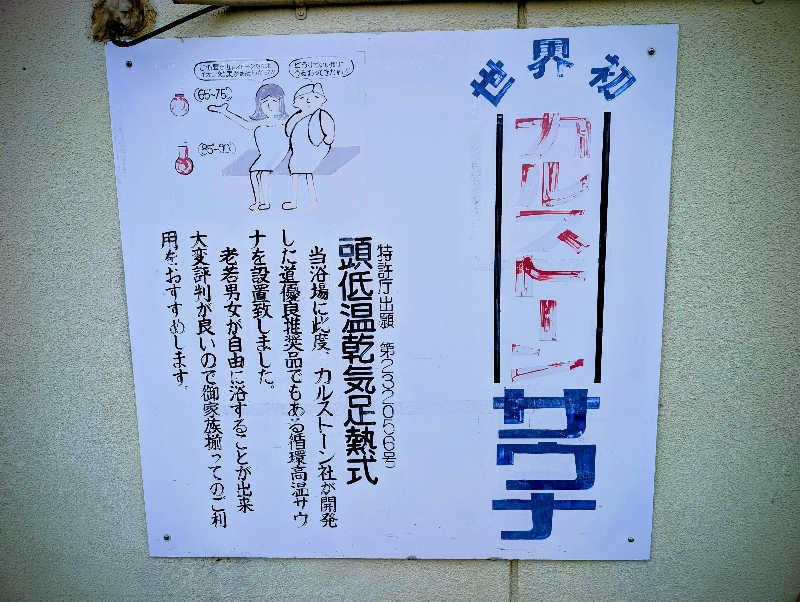 世界初
カルストーン
サウナ
特許庁出願 第232056号)
頭低温乾気足熱式
当浴場に此度、カルストーン社が開発
した道優良推奨品でもある循環高温サウ
ナを設置致しました。
老若男女が自由に浴することが出来
大変評判が良いので御家族揃ってのご利
用をおすすめします。
(65~75)
(85~90)